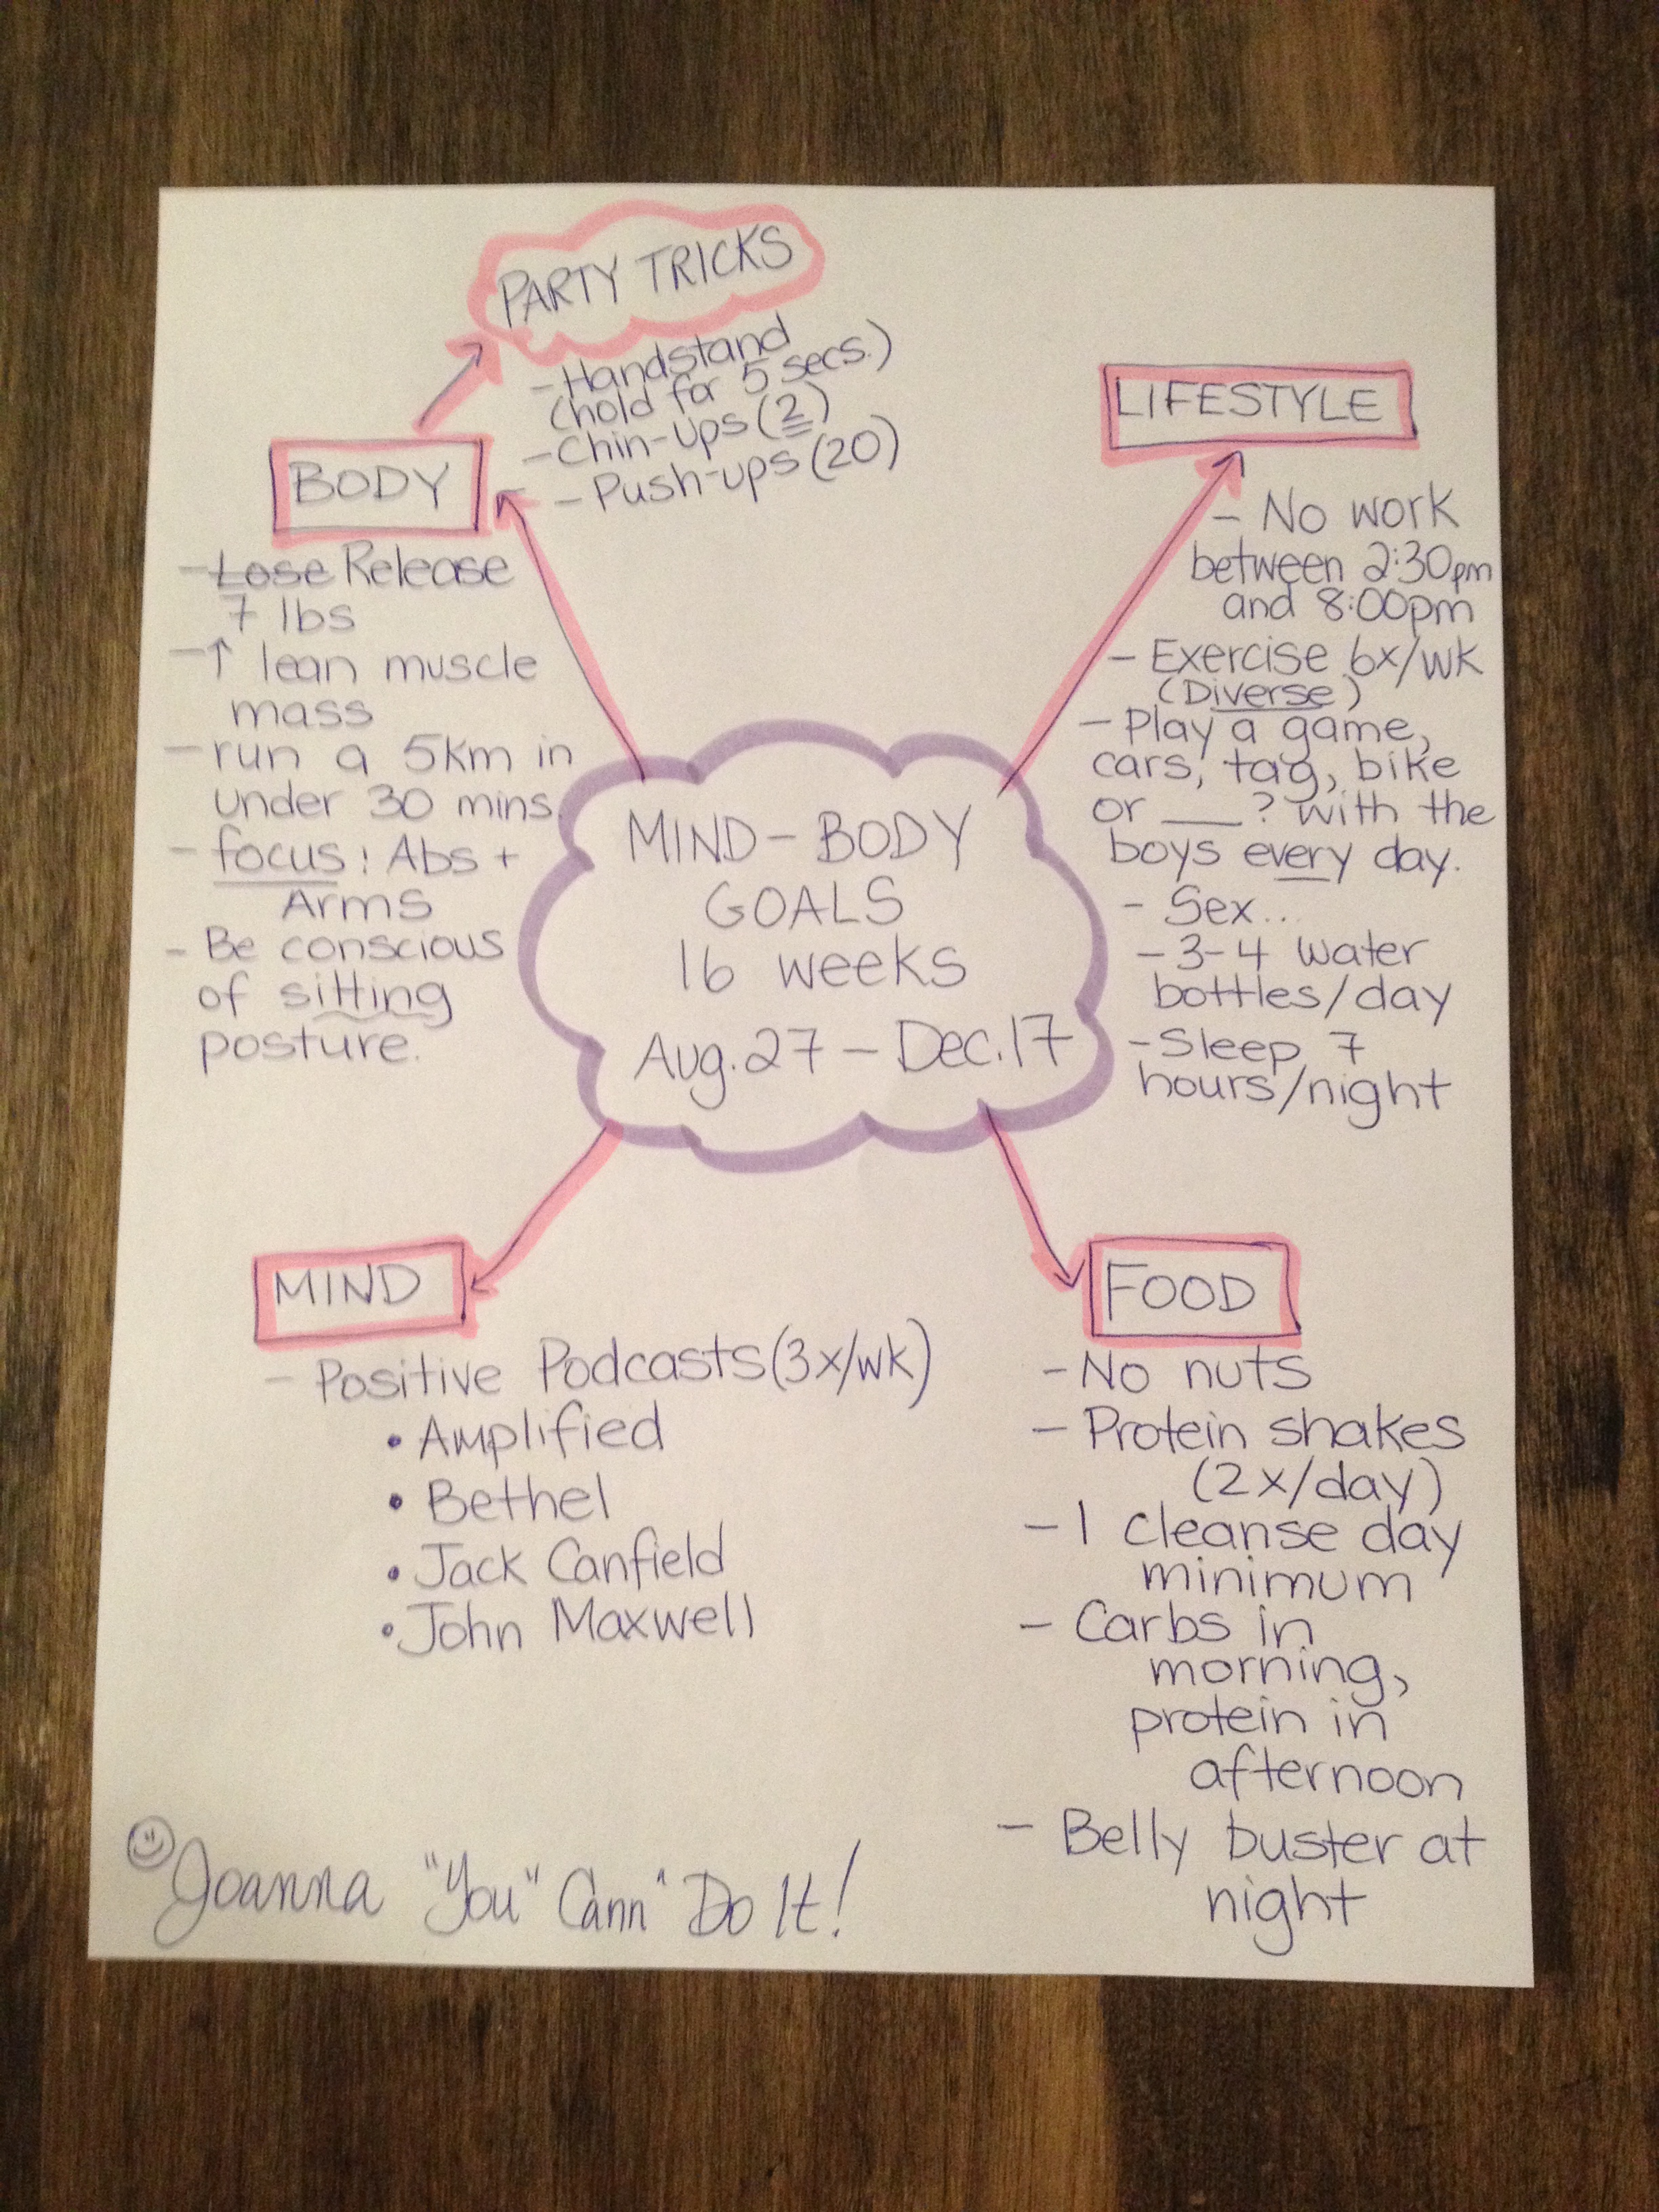 PARTY TRICKS
- Handstand
(hold for 5 secs.)
- Chin-ups (2)
- Push-ups (20)
BODY
- Lose Release
7 lbs
- ↑ lean muscle
mass
- run a 5km in
under 30 mins.
- focus: Abs +
Arms
- Be conscious
of sitting
posture.
LIFESTYLE
- No work
between 2:30pm
and 8:00pm
- Exercise 6x/wk
(Diverse)
- Play a game,
cars, tag, bike
or ___? with the
boys every day.
- Sex...
- 3-4 water
bottles/day
- Sleep 7
hours/night
MIND-BODY
GOALS
16 weeks
Aug.27 - Dec.17
MIND
- Positive Podcasts (3x/wk)
• Amplified
• Bethel
• Jack Canfield
• John Maxwell
FOOD
- No nuts
- Protein shakes
(2x/day)
- 1 cleanse day
minimum
- Carbs in
morning,
protein in
afternoon
- Belly buster at
night
Joanna "You" "Cann" Do It!